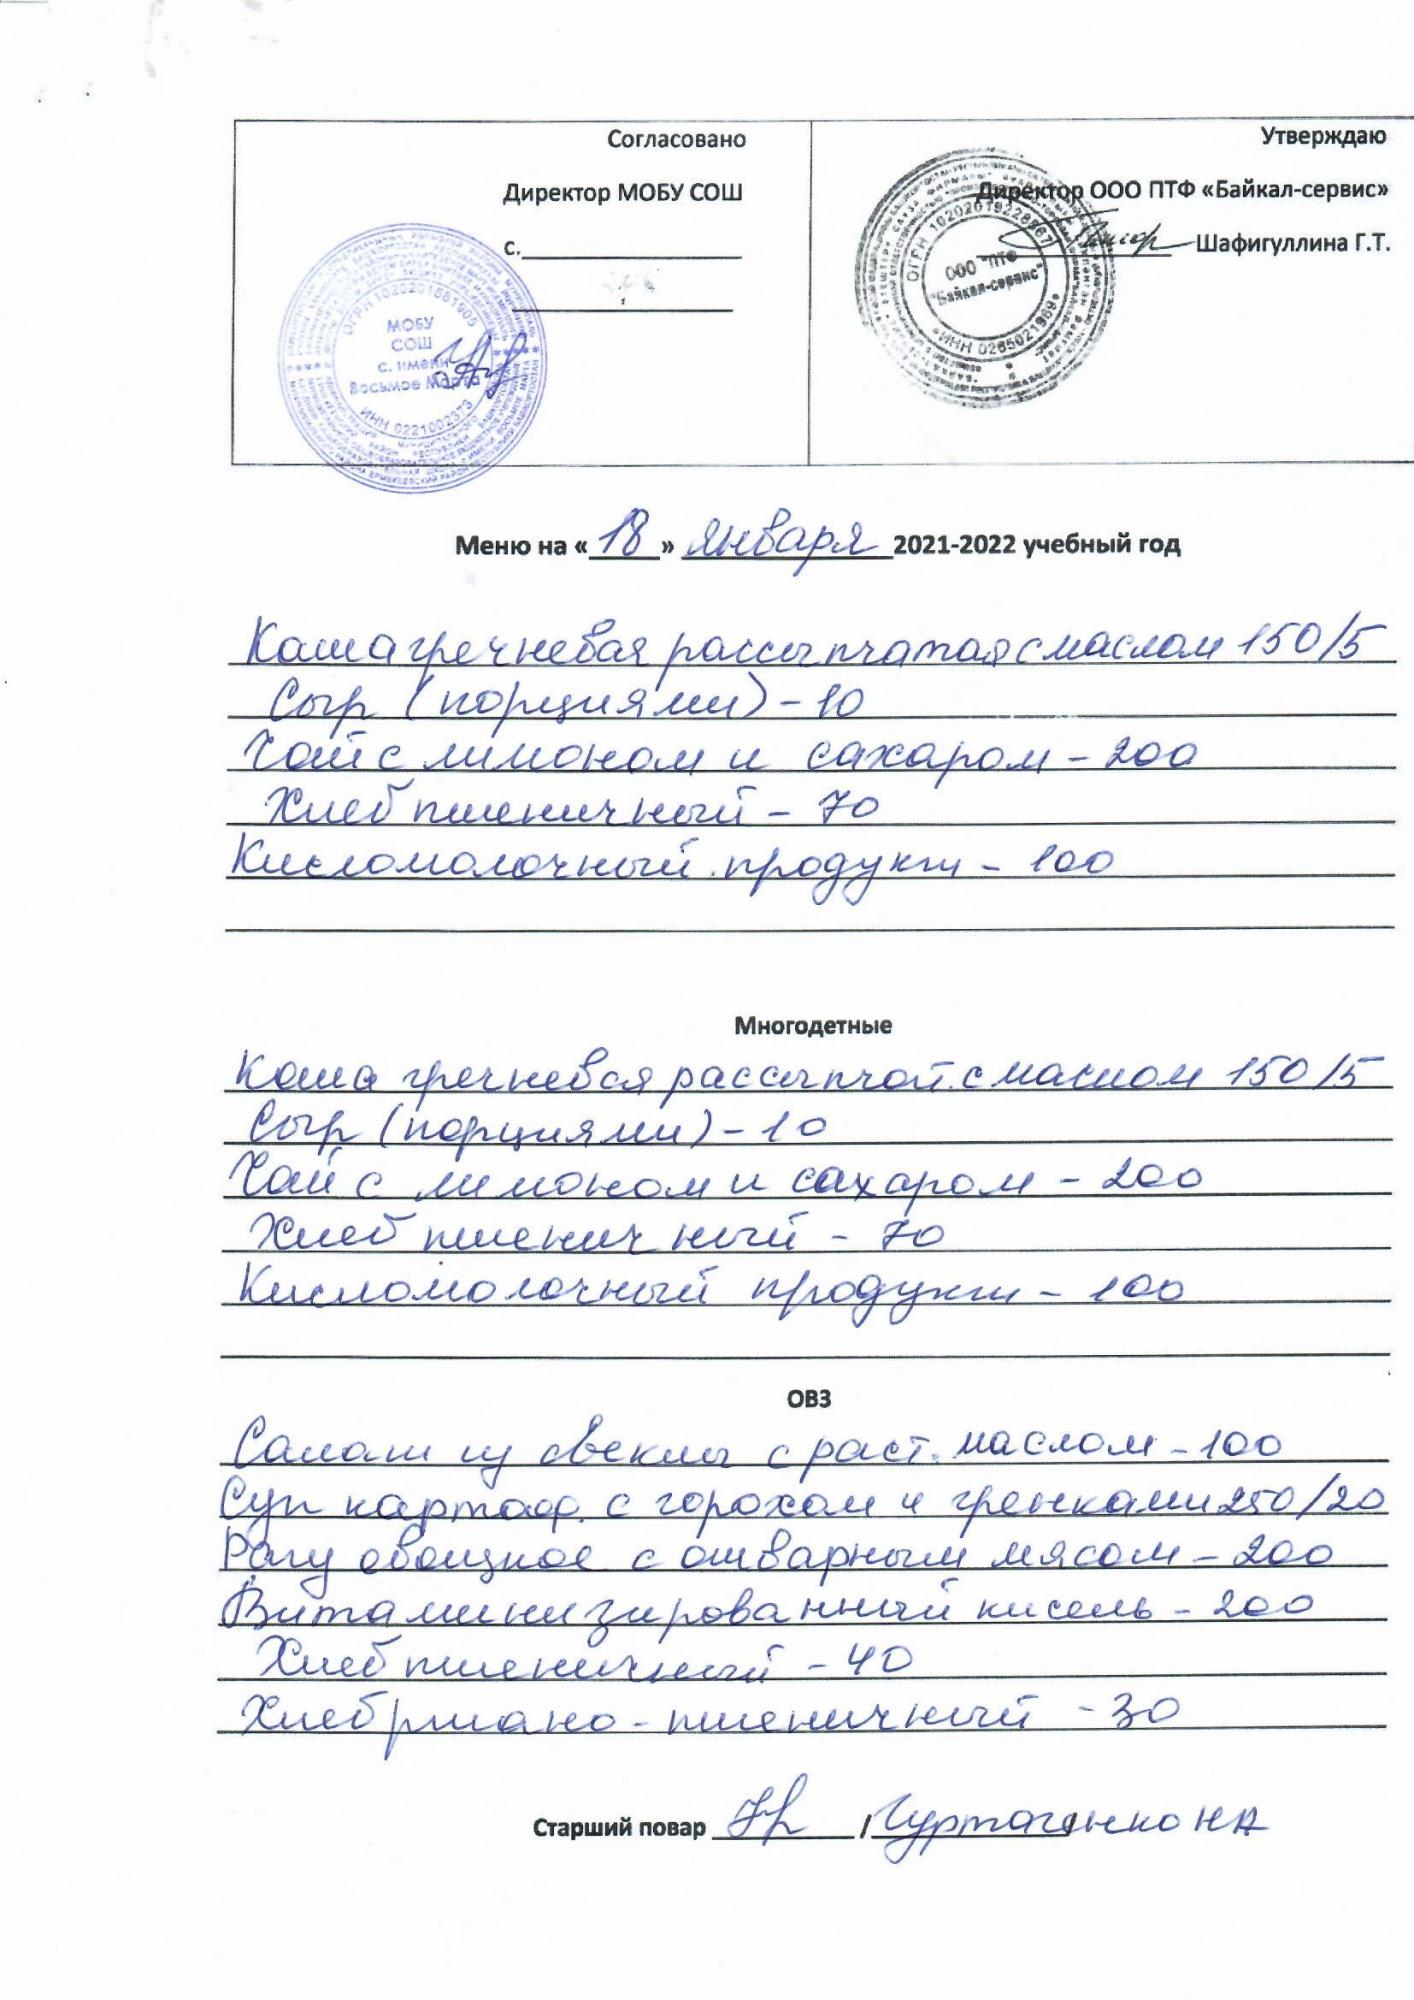 Согласовано
Директор МОБУ СОШ
с.
ОГРН 1020201881905
МОБУ
СОШ
с. имени
Восьмое Марта
ИНН 0221002373
Утверждаю
Директор ООО ПТФ «Байкал-сервис»
Шафигуллина Г.Т.
ОГРН 1020201922
ООО "ПТФ
"Байкал-сервис"
ИНН 0265021989
Меню на «18» января 2021-2022 учебный год
Каша гречневая рассыпчатая с маслом 150/5
Сыр (порциями) - 10
Чай с лимоном и сахаром - 200
Хлеб пшеничный - 70
Кисломолочный продукт - 100
Многодетные
Каша гречневая рассыпчат. с маслом 150/5
Сыр (порциями) - 10
Чай с лимоном и сахаром - 200
Хлеб пшеничный - 70
Кисломолочный продукт - 100
ОВЗ
Салат из свеклы с раст. маслом - 100
Суп картоф. с горохом и гренками 250/20
Рагу овощное с отварным мясом - 200
Витаминизированный кисель - 200
Хлеб пшеничный - 40
Хлеб ржано-пшеничный - 30
Старший повар / НА